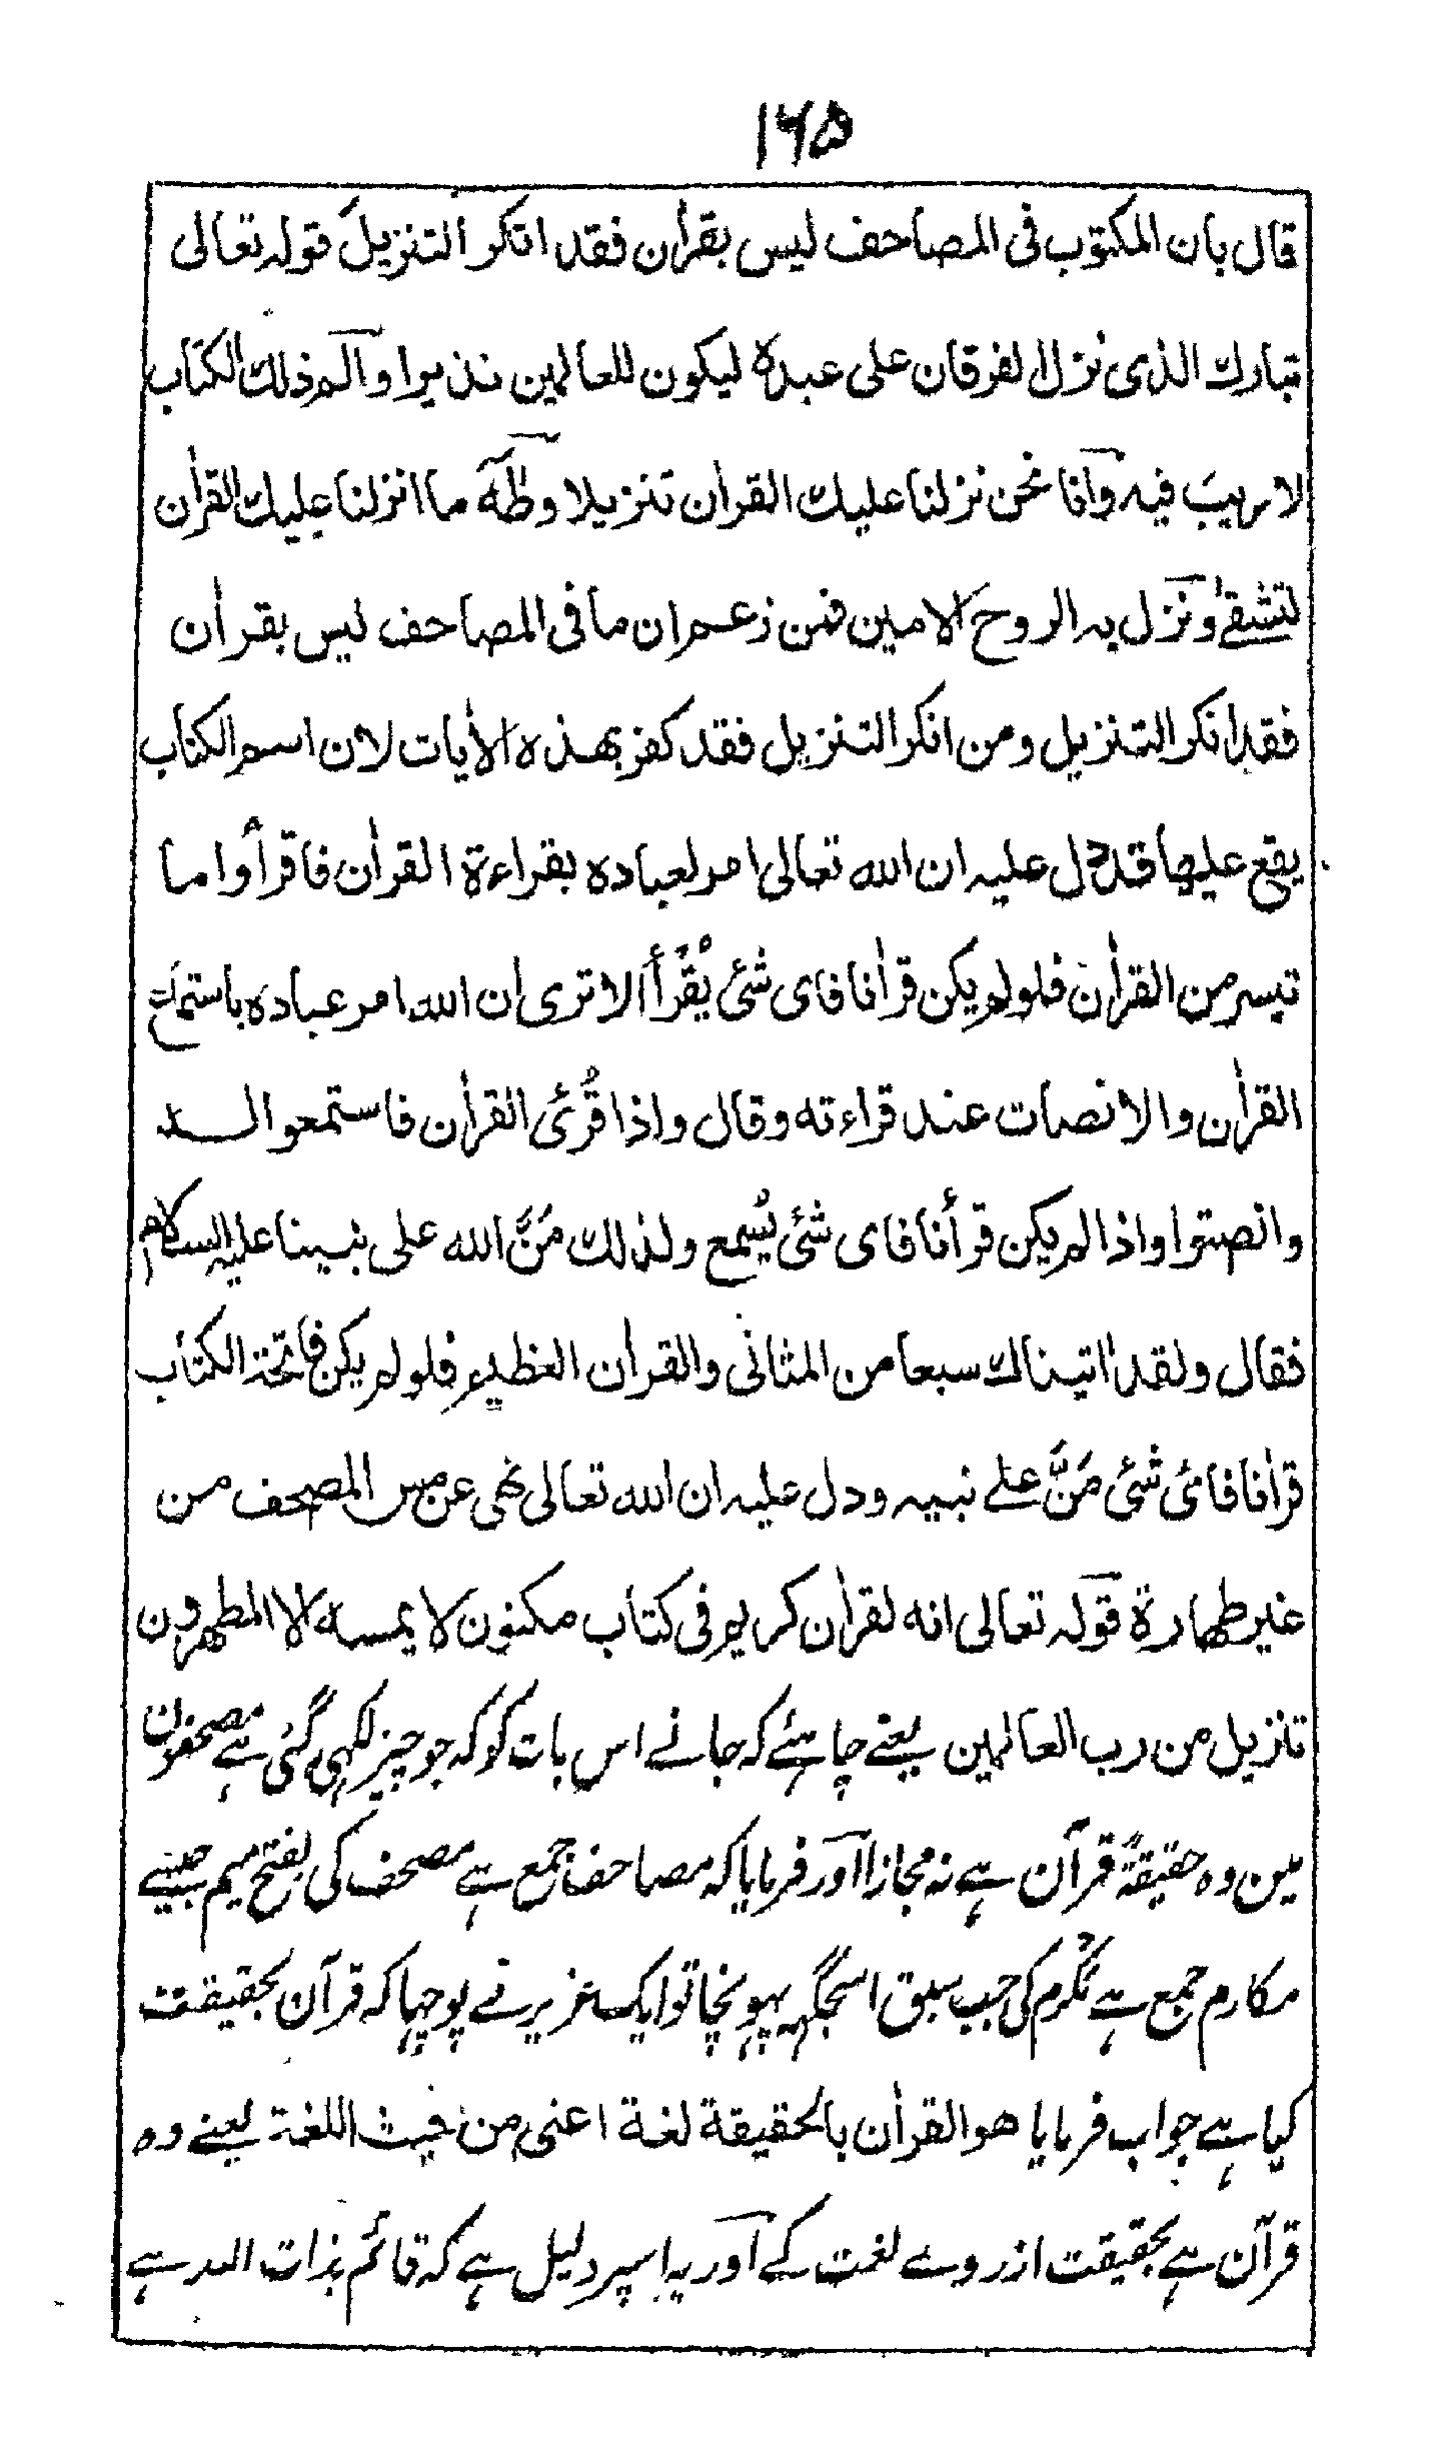 ۱۶۵
قال بان المکتوب فی المصاحف لیس بقرأن فقد انکر التنزیل قوله تعالی
تبارك الذی نزل الفرقان علی عبده لیکون للعالمین نذیرا و آلٓم ذلك الکتاب
لا ریب فیه و انا نحن نزلنا علیك القرأن تنزیلا و طٰهٰ ما انزلنا علیك القراٰن
لتشقےٰ و نزل به الروح الامین فمن زعم ان ما فی المصاحف لیس بقراٰن
فقد انکر التنزیل ومن انکر التنزیل فقد کفر بهذه الاٰیات لان اسم الکتاب
یقع علیها قد دل علیه ان الله تعالی امر لعباده بقراءة القراٰن فاقرأوا ما
تیسر من القراٰن فلو لم یکن قراٰنا فای شئ یُقْرَأ الا تری ان الله امر عباده باستماع
القراٰن والانصات عند قراءته وقال واذا قُرئ القراٰن فاستمعوا له
وانصتوا واذا لم یکن قرأنا فای شئ یُسمع ولذلك مَنَّ الله علی نبینا علیه السلام
فقال ولقد اٰتیناك سبعا من المثانی والقراٰن العظیم فلو لم یکن فاتحة الکتاب
قراٰنا فائ شئ مَنَّ علے نبیه ودل علیه ان الله تعالی نهی عن مس المصحف من
غیر طهارة قوله تعالی انه لقراٰن کریم فی کتاب مکنون لا یمسه الا المطهرون
تنزیل من رب العالمین یعنے چاہئے کہ جانے اس بات کو کہ جو چیز لکہی گئی ہے مصحفون
مین وہ حقیقةً قرآن ہے نہ مجازاً اور فرمایا کہ مصاحف جمع ہے مصحف کی بفتح میم جیسے
مکارم جمع ہے مُکرم کی جب سبق اسجگہہ پہونچا تو ایک عزیز نے پوچہا کہ قرآن بحقیقت
کیا ہے جواب فرمایا هو القراٰن بالحقیقة لغة اعنی من حیث اللغة یعنے وہ
قرآن ہے بحقیقت از روے لغت کے اور یہ اسپر دلیل ہے کہ قائم بذات اللہ ہے